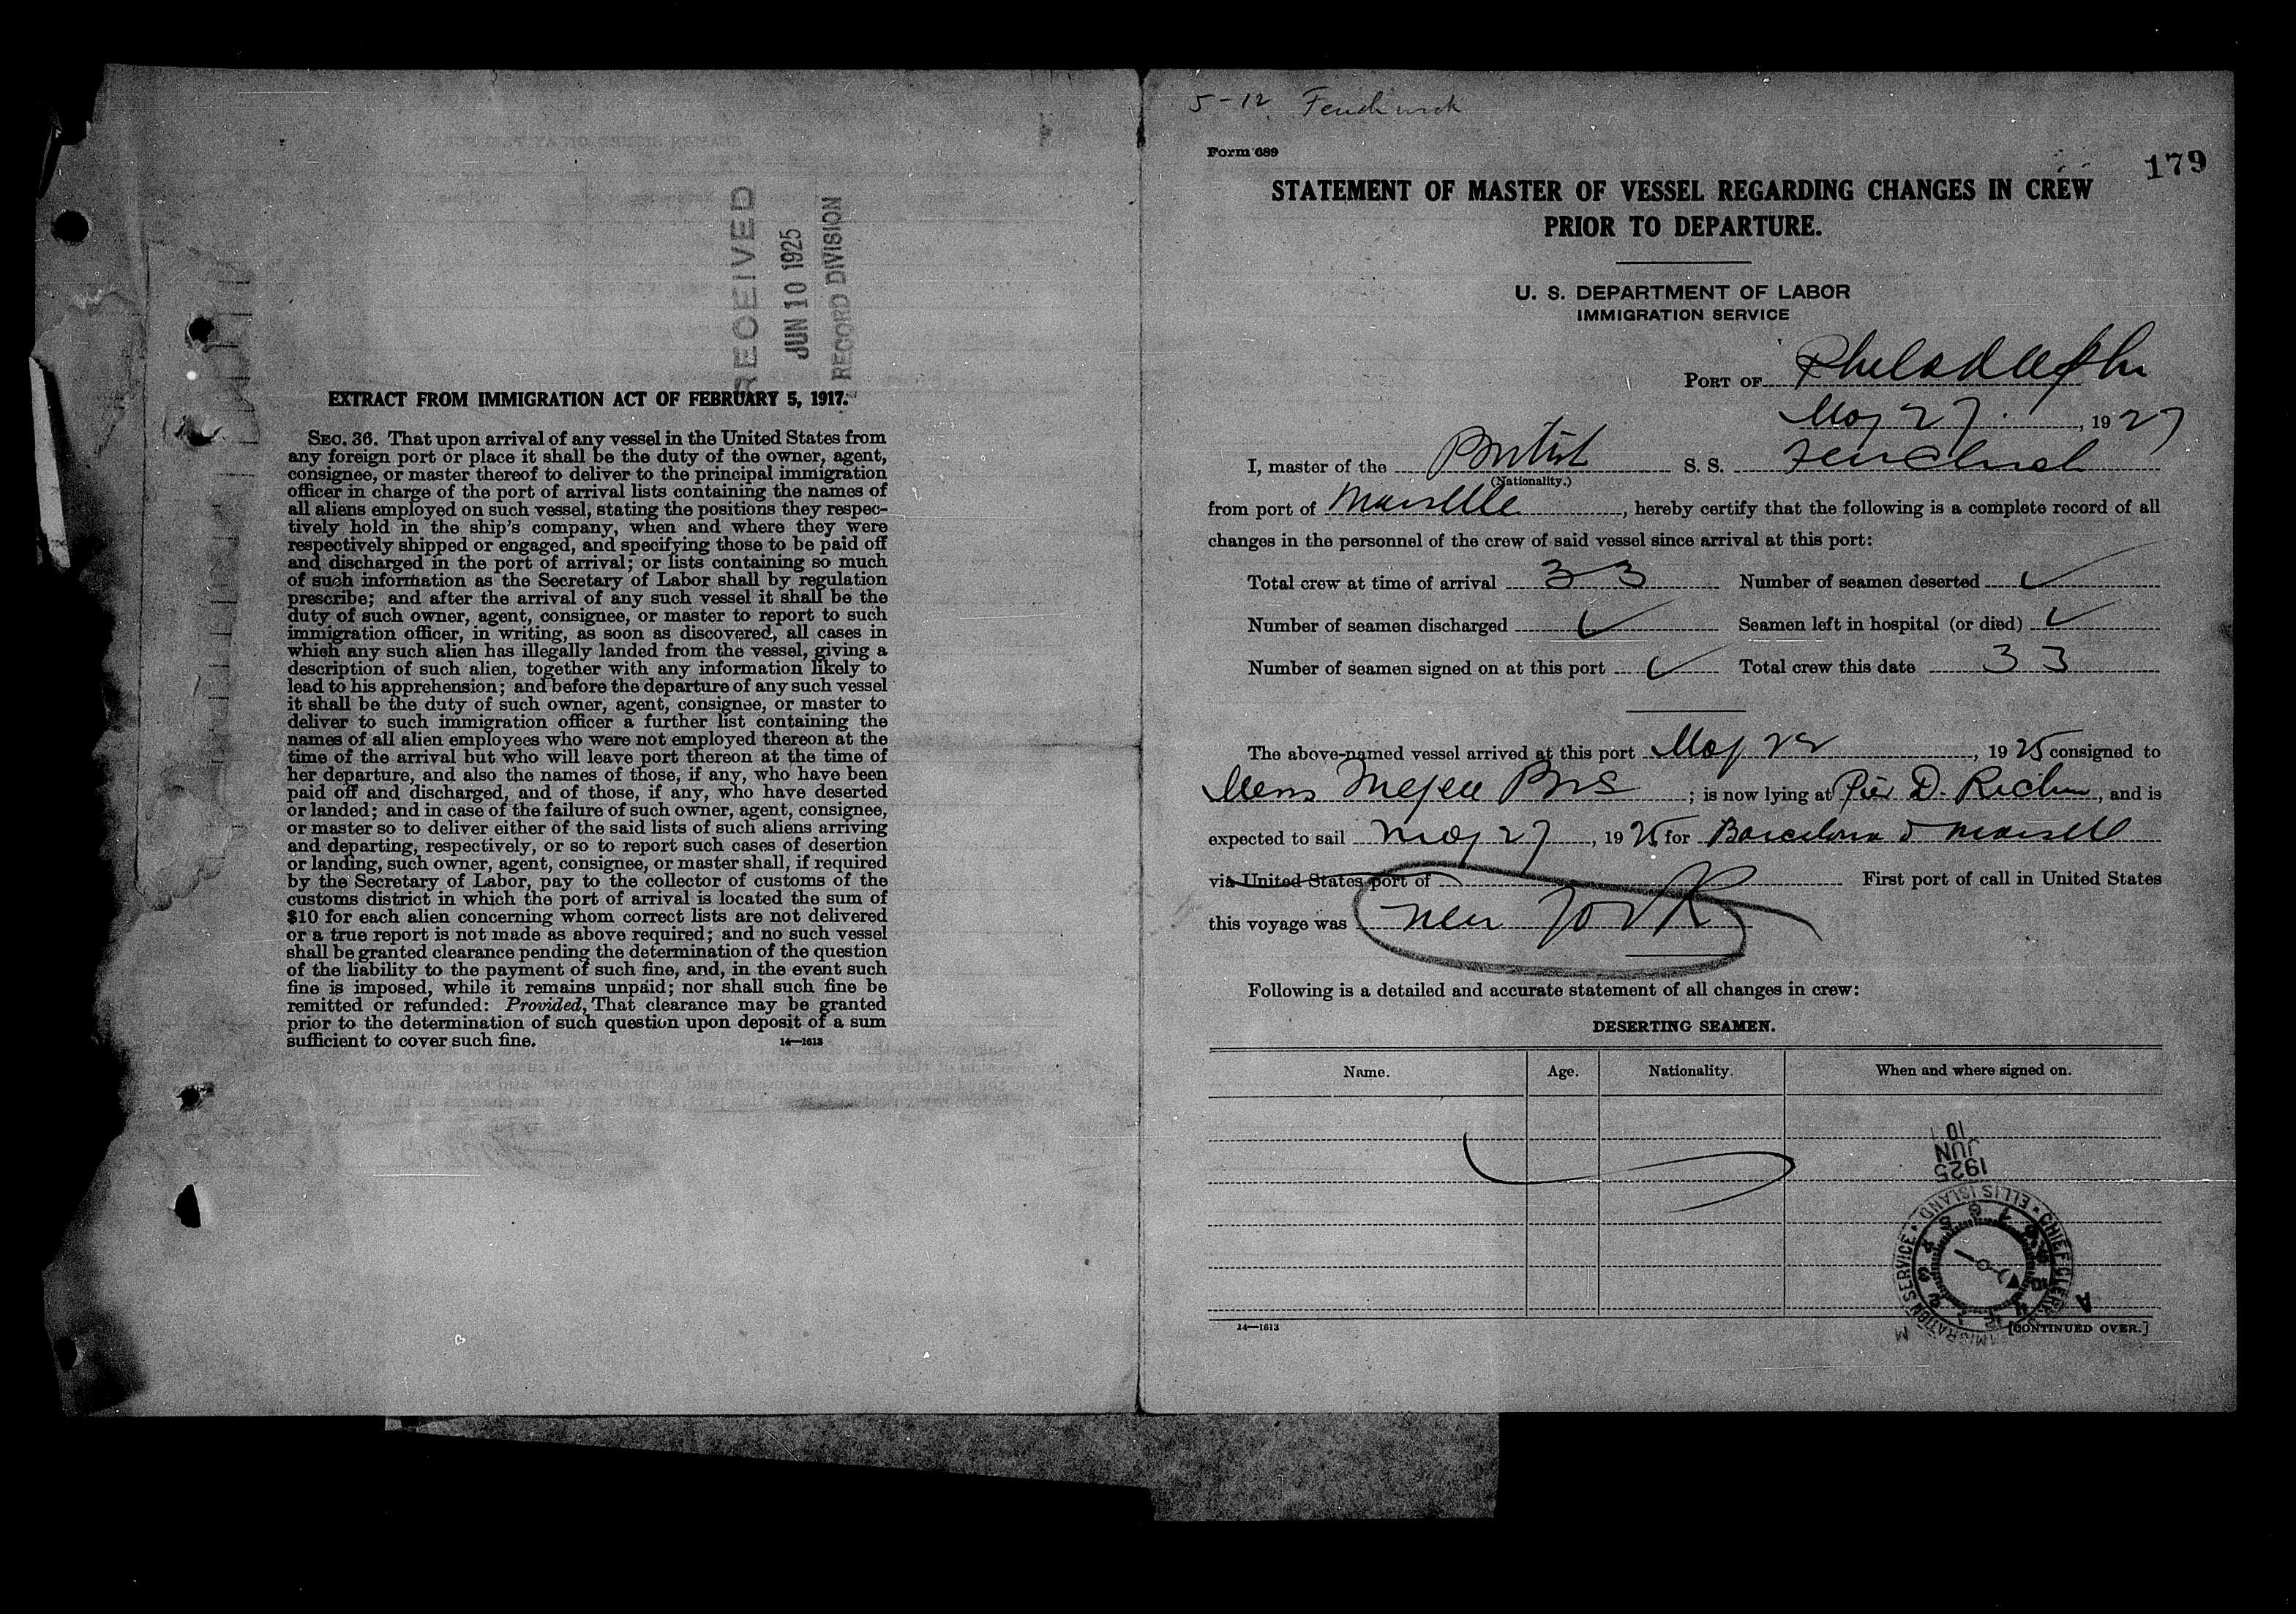 RECEIVED
JUN 10 1925
RECORD DIVISION
EXTRACT FROM IMMIGRATION ACT OF FEBRUARY 5, 1917.
SEC. 36. That upon arrival of any vessel in the United States from
any foreign port or place it shall be the duty of the owner, agent,
consignee, or master thereof to deliver to the principal immigration
officer in charge of the port of arrival lists containing the names of
all aliens employed on such vessel, stating the positions they respec-
tively hold in the ship's company, when and where they were
respectively shipped or engaged, and specifying those to be paid off
and discharged in the port of arrival; or lists containing so much
of such information as the Secretary of Labor shall by regulation
prescribe; and after the arrival of any such vessel it shall be the
duty of such owner, agent, consignee, or master to report to such
immigration officer, in writing, as soon as discovered, all cases in
which any such alien has illegally landed from the vessel, giving a
description of such alien, together with any information likely to
lead to his apprehension; and before the departure of any such vessel
it shall be the duty of such owner, agent, consignee, or master to
deliver to such immigration officer a further list containing the
names of all alien employees who were not employed thereon at the
time of the arrival but who will leave port thereon at the time of
her departure, and also the names of those, if any, who have been
paid off and discharged, and of those, if any, who have deserted
or landed; and in case of the failure of such owner, agent, consignee,
or master so to deliver either of the said lists of such aliens arriving
and departing, respectively, or so to report such cases of desertion
or landing, such owner, agent, consignee, or master shall, if required
by the Secretary of Labor, pay to the collector of customs of the
customs district in which the port of arrival is located the sum of
$10 for each alien concerning whom correct lists are not delivered
or a true report is not made as above required; and no such vessel
shall be granted clearance pending the determination of the question
of the liability to the payment of such fine, and, in the event such
fine is imposed, while it remains unpaid; nor shall such fine be
remitted or refunded: Provided, That clearance may be granted
prior to the determination of such question upon deposit of a sum
sufficient to cover such fine. 14—1613
5-12
Form 689
179
STATEMENT OF MASTER OF VESSEL REGARDING CHANGES IN CREW
PRIOR TO DEPARTURE.
U. S. DEPARTMENT OF LABOR
IMMIGRATION SERVICE
PORT OF Philadelphia
May 27, 1927
I, master of the British S. S.
(Nationality.)
from port of Marseille, hereby certify that the following is a complete record of all
changes in the personnel of the crew of said vessel since arrival at this port:
Total crew at time of arrival 33 Number of seamen deserted ✓
Number of seamen discharged ✓ Seamen left in hospital (or died) ✓
Number of seamen signed on at this port ✓ Total crew this date 33
The above-named vessel arrived at this port May 22, 1925 consigned to
; is now lying at Pier D. , and is
expected to sail May 27, 1925 for Barcelona & Marseille
via United States port of First port of call in United States
this voyage was New York
Following is a detailed and accurate statement of all changes in crew:
DESERTING SEAMEN.
Name. Age. Nationality. When and where signed on.
1925
JUN
10
IMMIGRATION SERVICE • ELLIS ISLAND • CHIEF CLERK
14—1613
[CONTINUED OVER.]